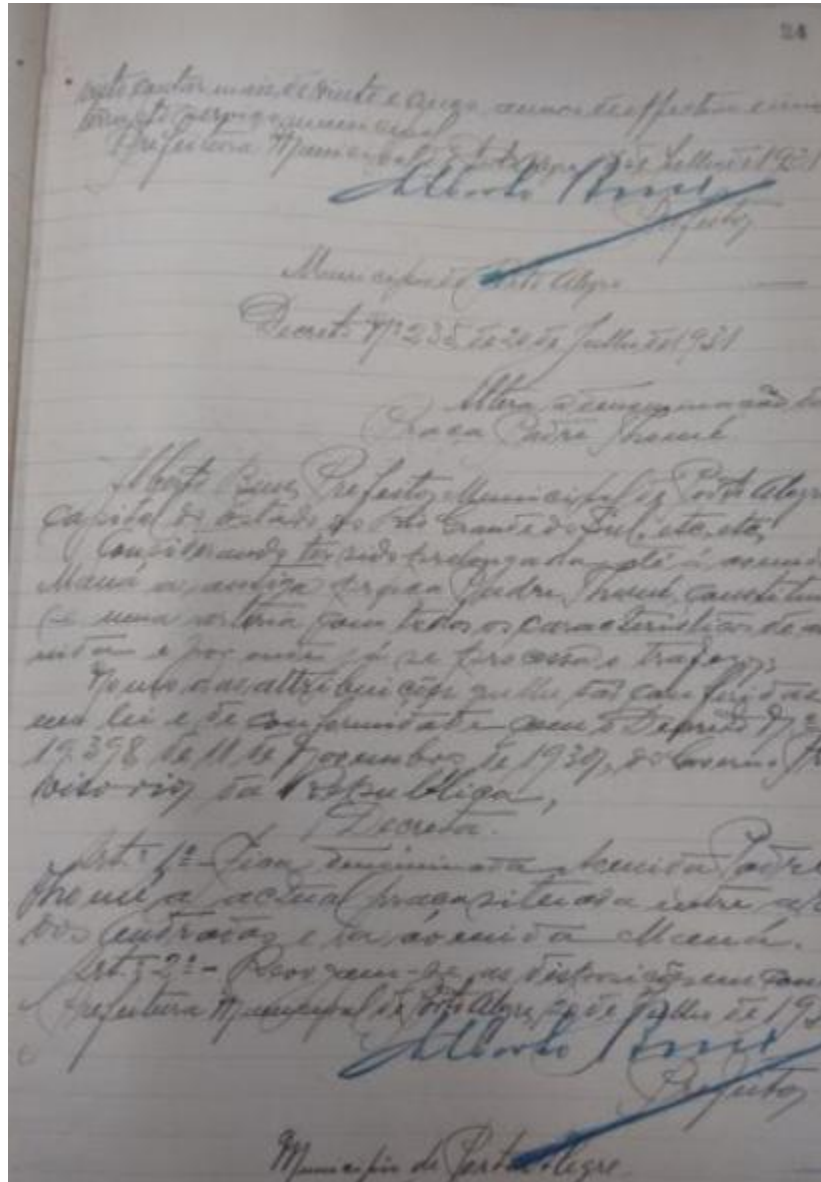 24
visto contar mais de vinte e cinco annos de effectivo e
serviço municipal
Prefeitura Municipal de Porto Alegre, de Julho de 1931
Alberto Bins
Prefeito
Municipio de Porto Alegre
Decreto Nº 235 de 20 de Julho de 1931
Altera a denominação da
Praça Padre Thomé
Alberto Bins, Prefeito Municipal de Porto Alegre
capital do Estado do Rio Grande do Sul, etc, etc,
Considerando ter sido prolongada até á avenida
Mauá a antiga praça Padre Thomé, constituin
se uma arteria com todos os caracteristicos de a
nida e por onde já se processa o trafego;
No uso das attribuições que lhe são conferidas
em lei e de conformidade com o Decreto Nº
19.398 de 11 de Novembro de 1930, do Governo Pro
visorio da Republica,
Decreta:
Art. 1º - Fica denominada Avenida Padre
Thomé a actual praça situada entre a
dos Andradas e a avenida Mauá.
Art. 2º - Revogam-se as disposições em con
Prefeitura Municipal de Porto Alegre, 20 de Julho de 193
Alberto Bins
Prefeito
Municipio de Porto Alegre